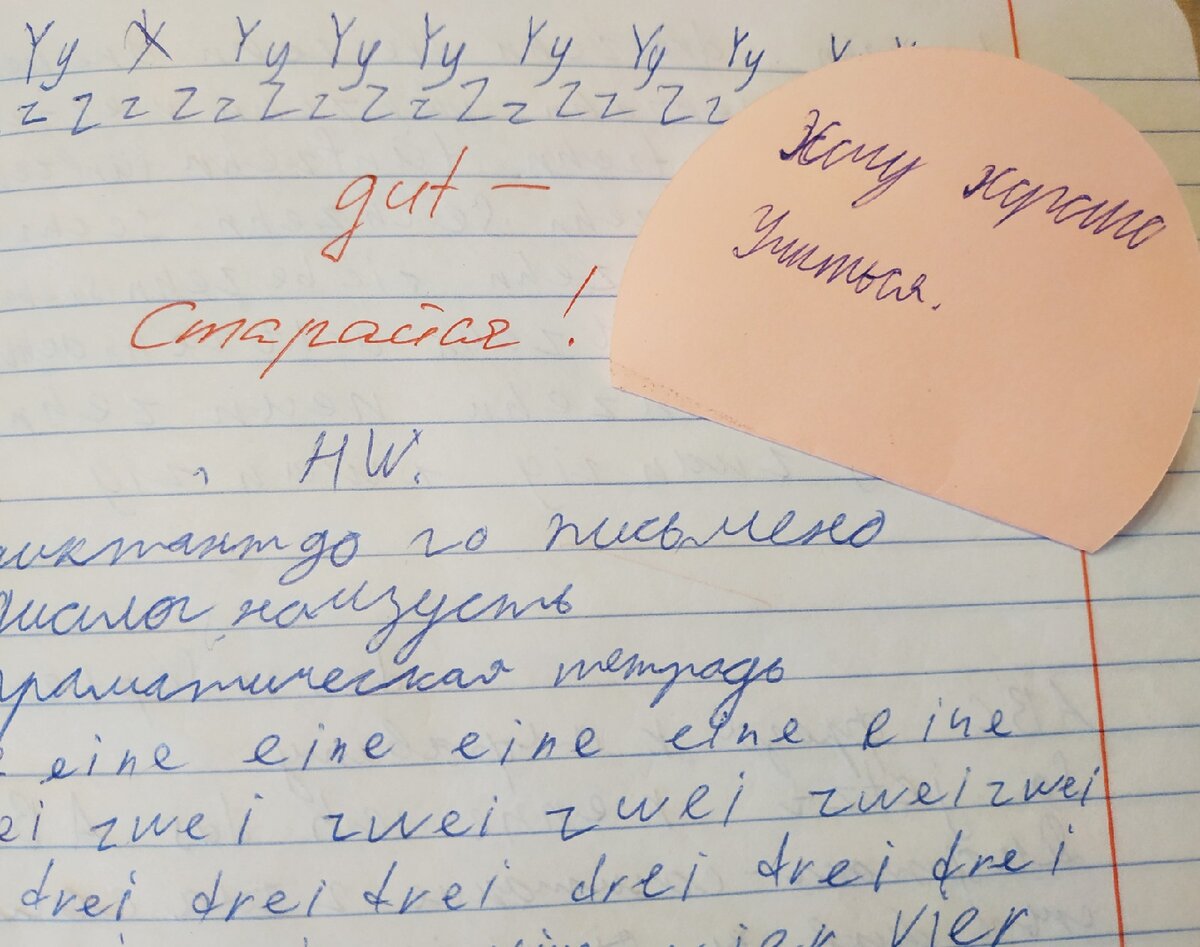 Yy X Yy Yy Yy Yy Yy Yy
z z z z z z z z z z z z z z z
gut –
Старайся!
Хочу хорошо
Учиться.
HW.
диктант до 20 письмено
диалог наизусть
граматическая тетрадь
eine eine eine eine eine
zwei zwei zwei zwei zwei
drei drei drei drei drei drei
vier vier